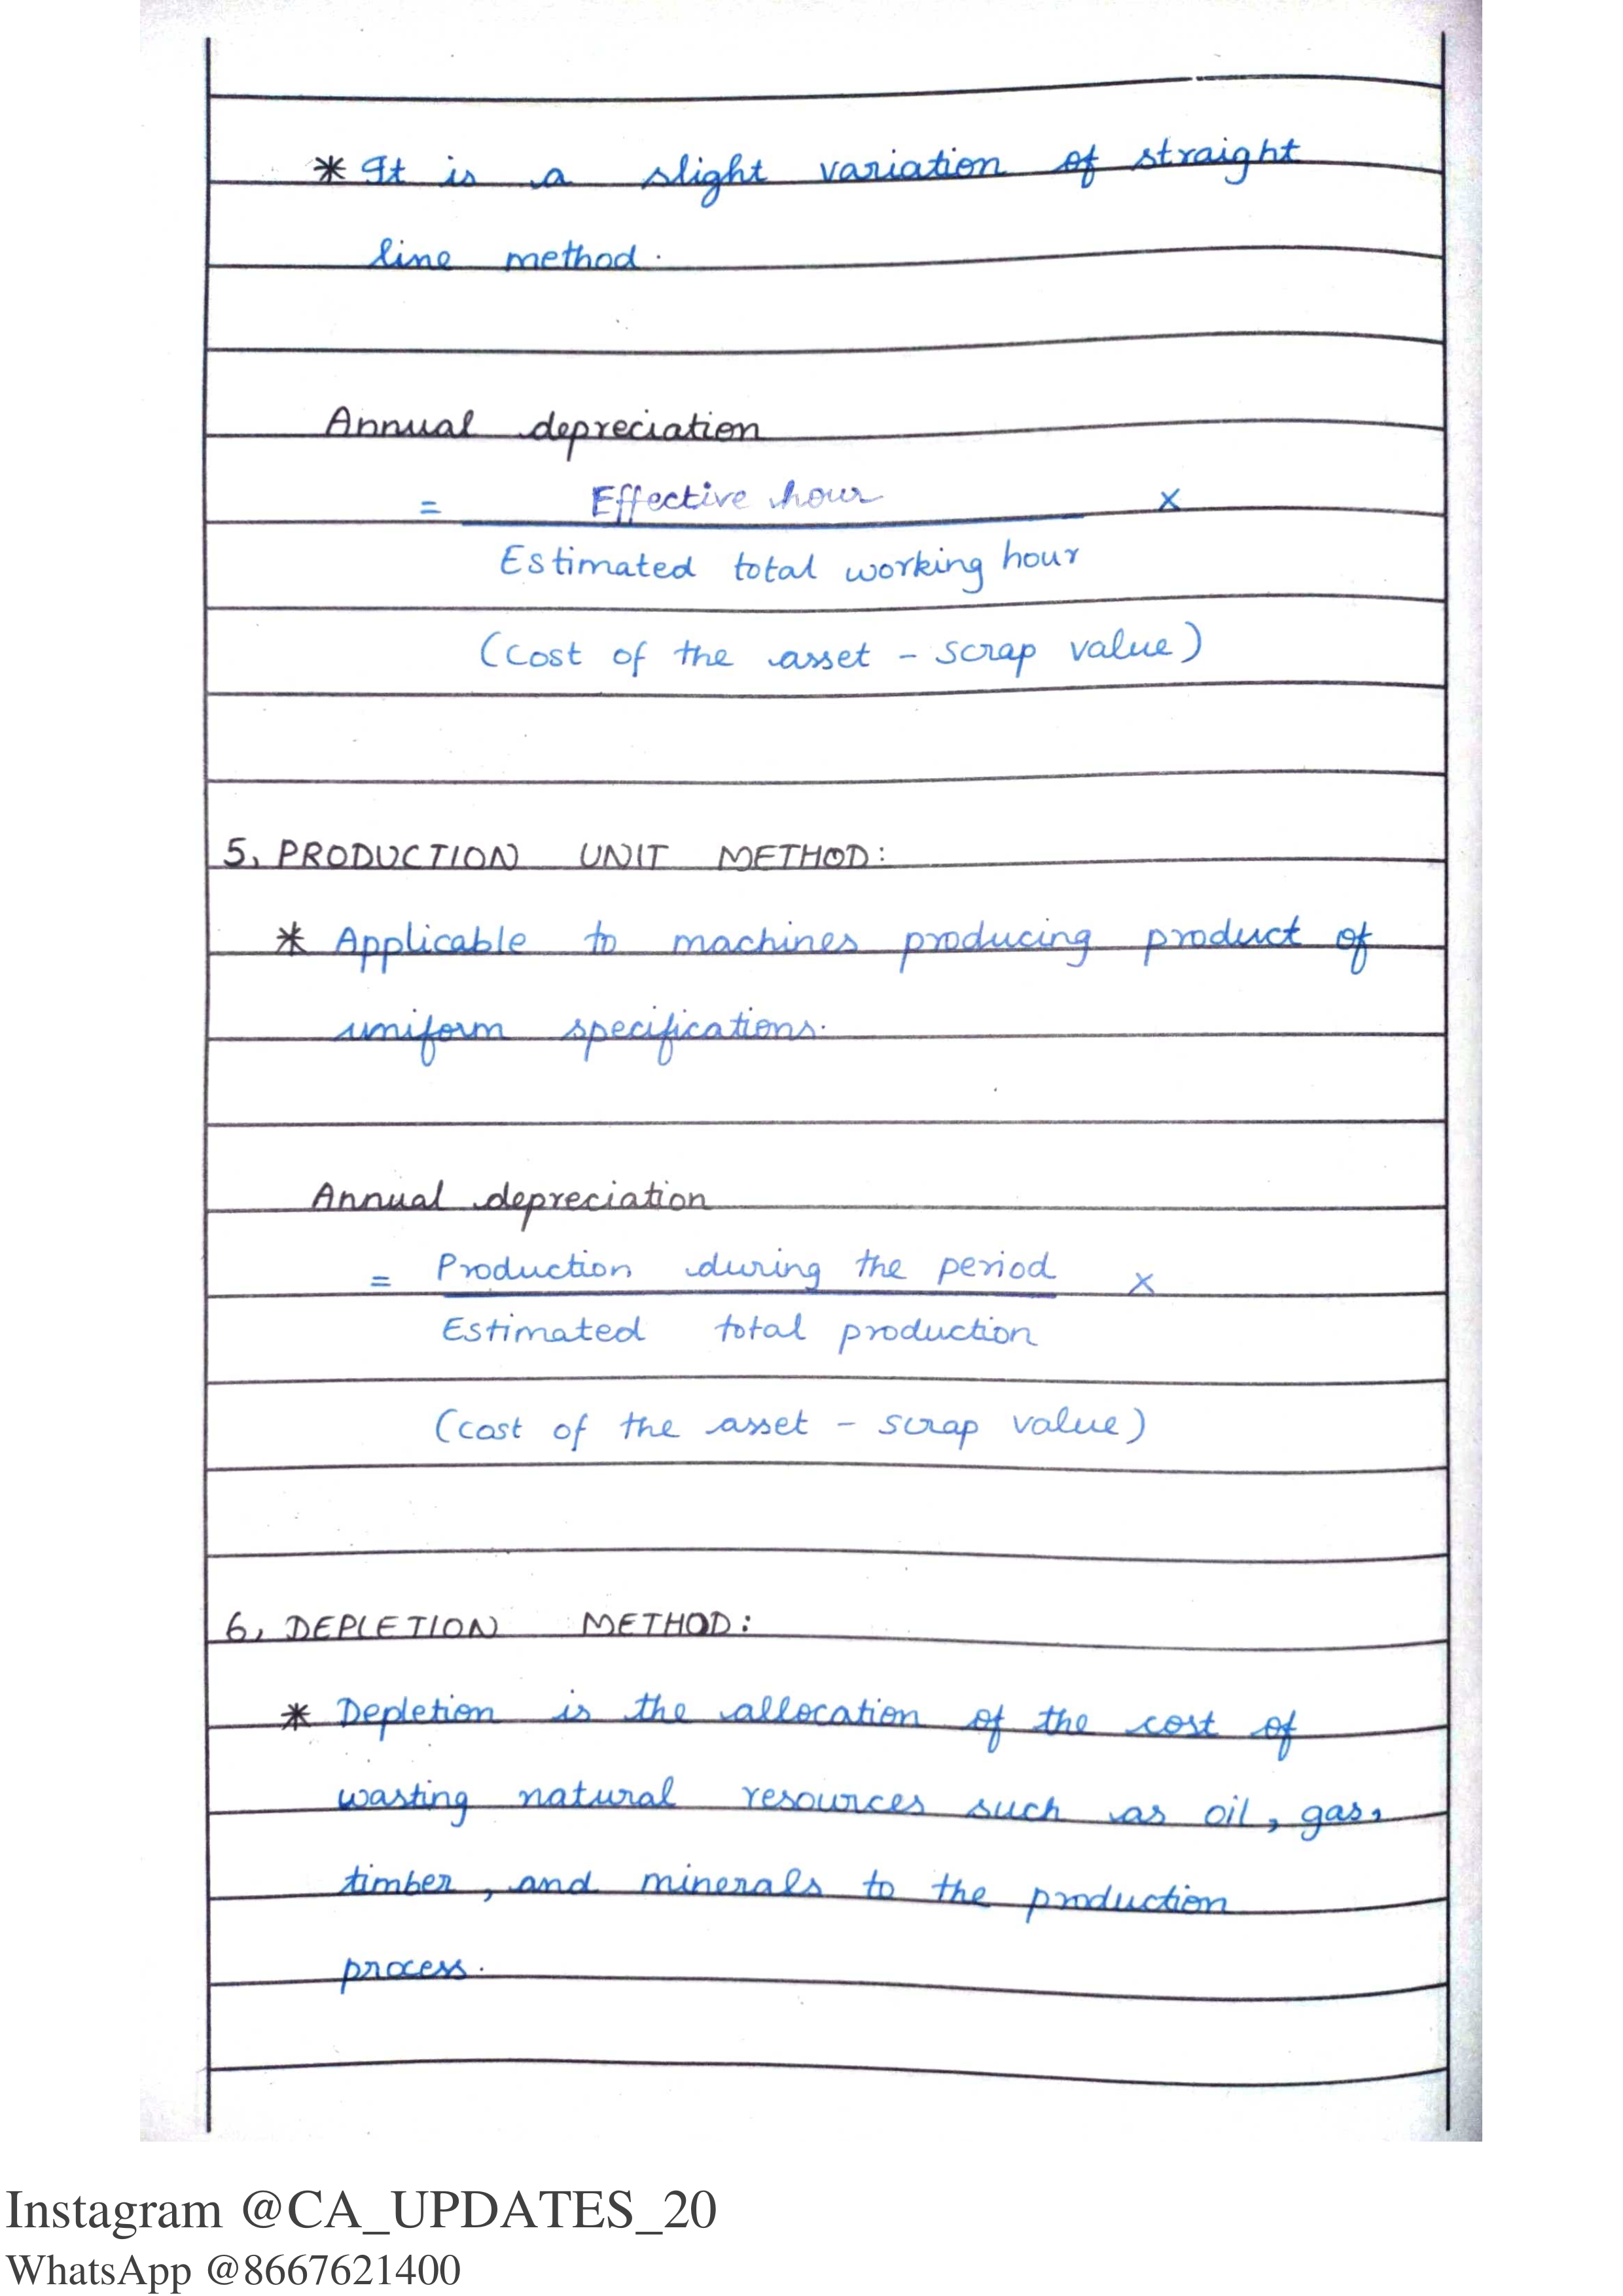 * It is a slight variation of straight
line method.
Annual depreciation
= Effective hour ×
Estimated total working hour
(cost of the asset - scrap value)
5, PRODUCTION UNIT METHOD:
* Applicable to machines producing product of
uniform specifications.
Annual depreciation
= Production during the period ×
Estimated total production
(cost of the asset - scrap value)
6, DEPLETION METHOD:
* Depletion is the allocation of the cost of
wasting natural resources such as oil, gas,
timber, and minerals to the production
process.
Instagram @CA_UPDATES_20
WhatsApp @8667621400